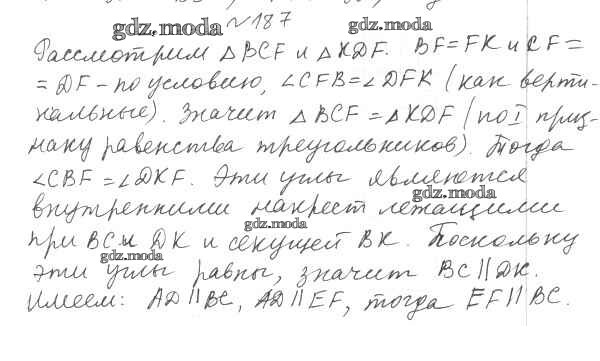 №187
gdz.moda
gdz.moda
Рассмотрим △BCF и △KDF. BF=FK и CF=
=DF - по условию, ∠CFB=∠DFK (как верти-
кальные). Значит △BCF=△KDF (по I приз-
наку равенства треугольников). Тогда
∠CBF=∠DKF. Эти углы являются
gdz.moda
внутренними накрест лежащими
gdz.moda
при BC и DK и секущей BK. Поскольку
gdz.moda
эти углы равны, значит BC∥DK.
Имеем: AD∥BC, AD∥EF, тогда EF∥BC.